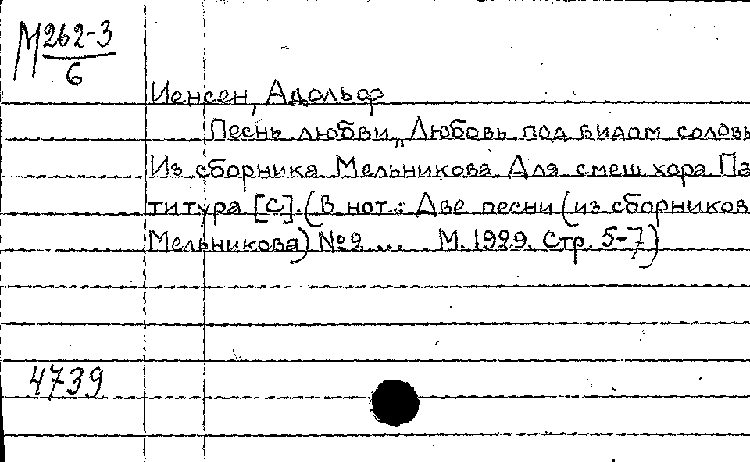 М 262-3
6
Иенсен, Адольф
Песнь любви „Любовь под видом соловь
Из сборника Мельникова. Для смеш хора. Па
титура [С]. (В нот.: Две песни (из сборников
Мельникова) № 2 ... М. 1929. Стр. 5-7)
4739